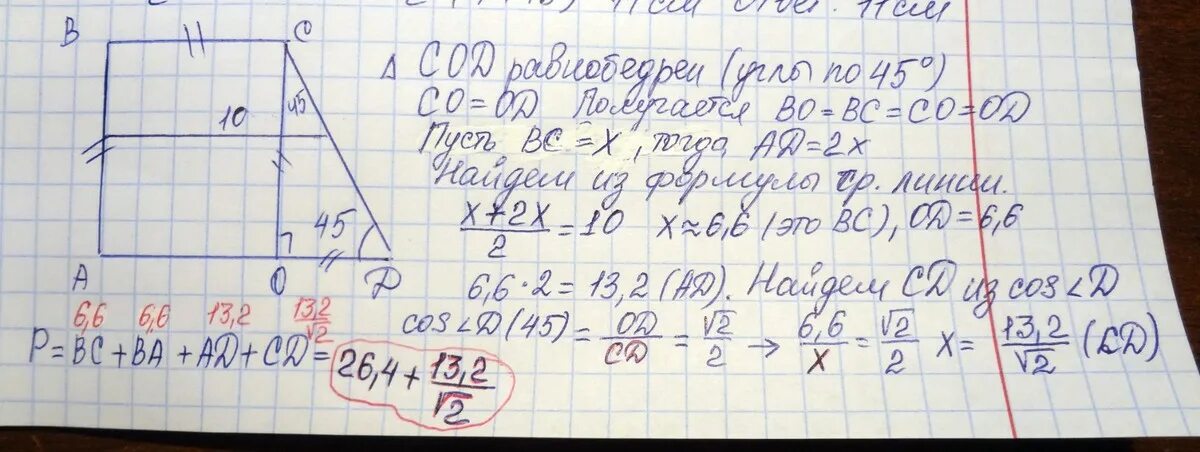 11см Ответ: 11см
B C
10 45
45
A O D
Δ COD равнобедрен (углы по 45°)
CO = OD Получается BO = BC = CO = OD
Пусть BC = X, тогда AD = 2x
Найдем из формулы ср. линии.
x+2x/2 = 10 x ≈ 6,6 (это BC), OD = 6,6
6,6 · 2 = 13,2 (AD). Найдем CD из cos∠D
cos∠D (45) = OD/CD = √2/2 → 6,6/x = √2/2 X = 13,2/√2 (CD)
6,6 6,6 13,2 13,2/√2
P = BC + BA + AD + CD = 26,4 + 13,2/√2